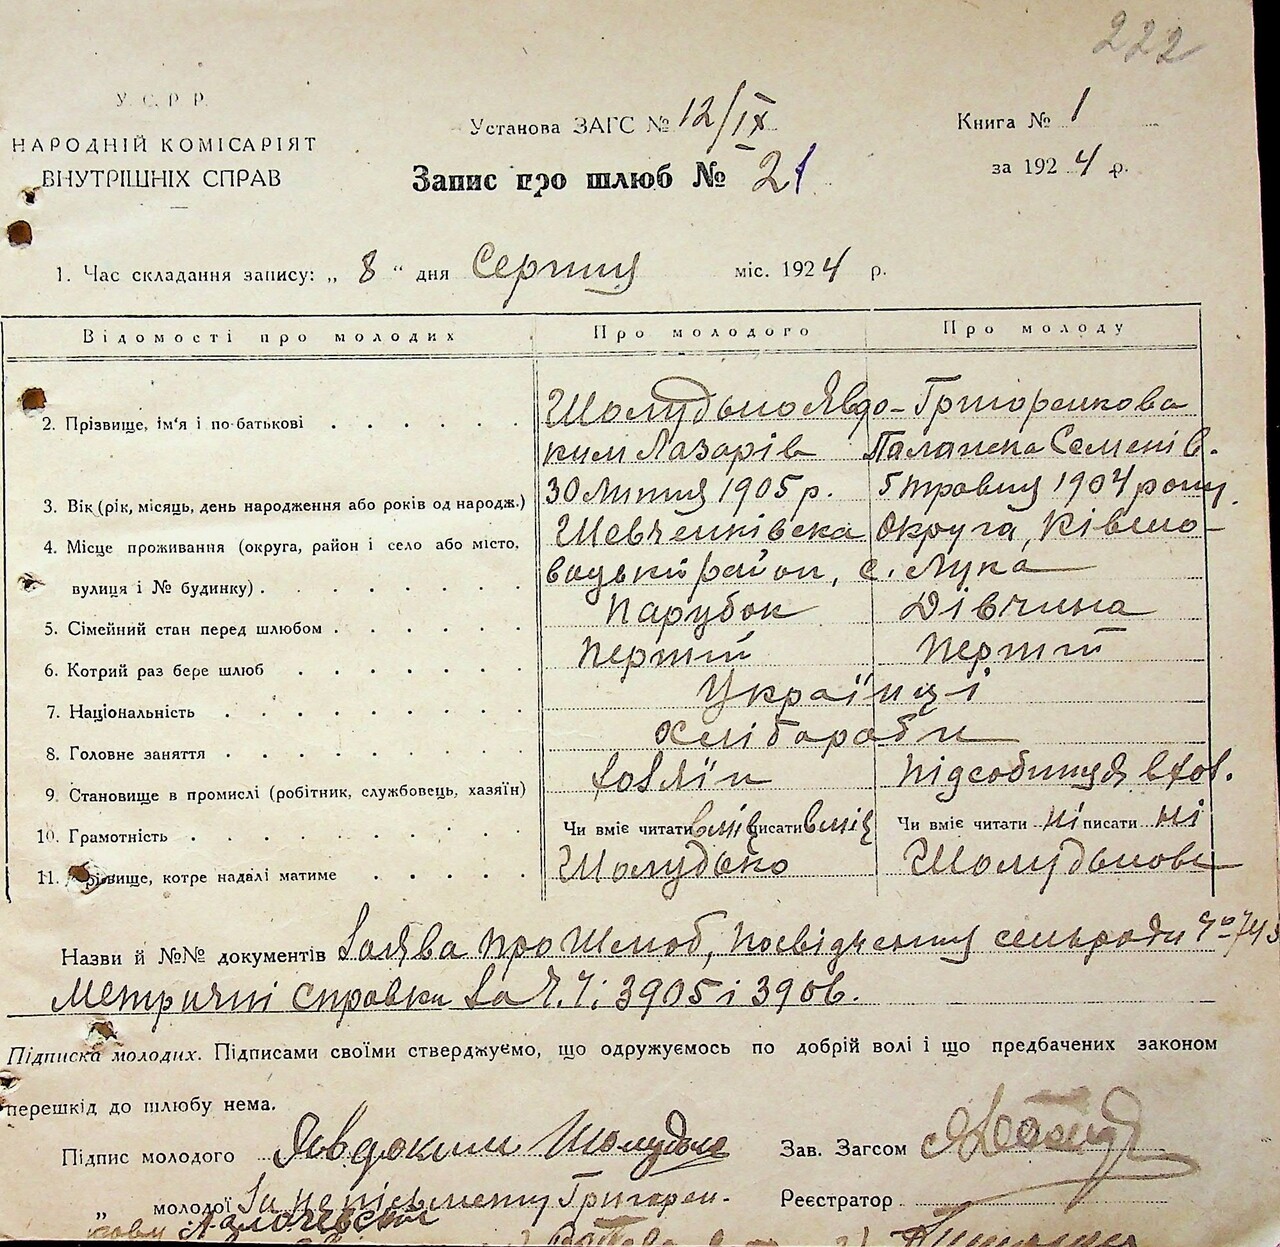 222
У. С. Р. Р.
НАРОДНІЙ КОМІСАРІЯТ
ВНУТРІШНІХ СПРАВ
Установа ЗАГС № 12/IX
Запис про шлюб № 21
Книга № 1
за 1924 р.
1. Час складання запису: „ 8 " дня Серпня міс. 1924 р.
Відомості про молодих Про молодого Про молоду
2. Прізвище, ім'я і по-батькові Шолудько Явдо- Григоренкова
ким Лазарів Палажка Семенів.
3. Вік (рік, місяць, день народження або років од народж.) 30 Липня 1905 р. 5 травня 1904 року.
4. Місце проживання (округа, район і село або місто, Шевченківська Округа, Ківшо-
вулиця і № будинку) ватський район, с. Лука
5. Сімейний стан перед шлюбом Парубок Дівчина
6. Котрий раз бере шлюб Перший Перший
7. Національність Українці
8. Головне заняття Хлібороби
9. Становище в промислі (робітник, службовець, хазяїн) хазяїн
10. Грамотність Чи вміє читати вміє писати вміє Чи вміє читати ні писати ні
11. Прізвище, котре надалі матиме Шолудько Шолудькова
Назви й №№ документів Заява про Шлюб, посвідчення сельради № 743
Метричні справки За Ч. Ч: 3905 і 3906.
Підписка молодих. Підписами своїми стверджуємо, що одружуємось по добрій волі і що предбачених законом
перешкід до шлюбу нема.
Підпис молодого Явдоким Шолудько Зав. Загсом
„ молодої За неписьменну Григорен- Реєстратор
кову